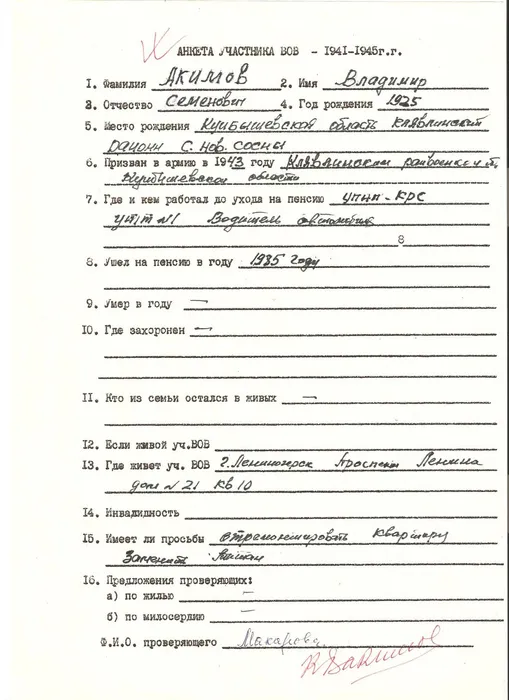 АНКЕТА УЧАСТНИКА ВОВ - 1941-1945г.г.
1. Фамилия Акимов 2. Имя Владимир
3. Отчество Семенович 4. Год рождения 1925
5. Место рождения Куйбышевская область Клявлинский
район с. Нов. Сосны
6. Призван в армию в 1943 году Клявлинским
Куйбышевской области
7. Где и кем работал до ухода на пенсию УПНП-КРС
УТТ №1 Водителем автомобиля
8
8. Ушел на пенсию в году 1985 году
9. Умер в году —
10. Где захоронен —
11. Кто из семьи остался в живых —
12. Если живой уч.ВОВ
13. Где живет уч. ВОВ г. Лениногорск Проспект Ленина
дом №21 кв 10
14. Инвалидность
15. Имеет ли просьбы отремонтировать квартиру
Заменить
16. Предложения проверяющих:
а) по жилью —
б) по милосердию —
Ф.И.О. проверяющего Макарова